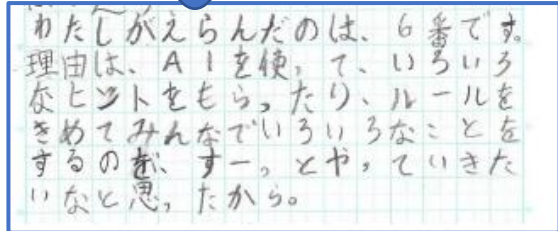 わたしがえらんだのは、6番です。
理由は、AIを使って、いろいろ
なヒントをもらったり、ルールを
きめてみんなでいろいろなことを
するのを、ずーっとやっていきた
いなと思ったから。